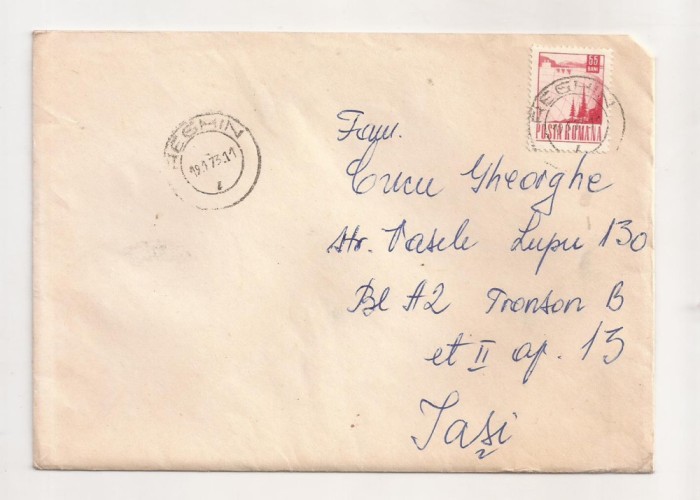 55
BANI
POSTA ROMANA
REGHIN
REGHIN
19.1.73.11
Fam.
Cucu Gheorghe
str. Vasile Lupu 130
Bl A2 Tronson B
et II ap. 13
Iași